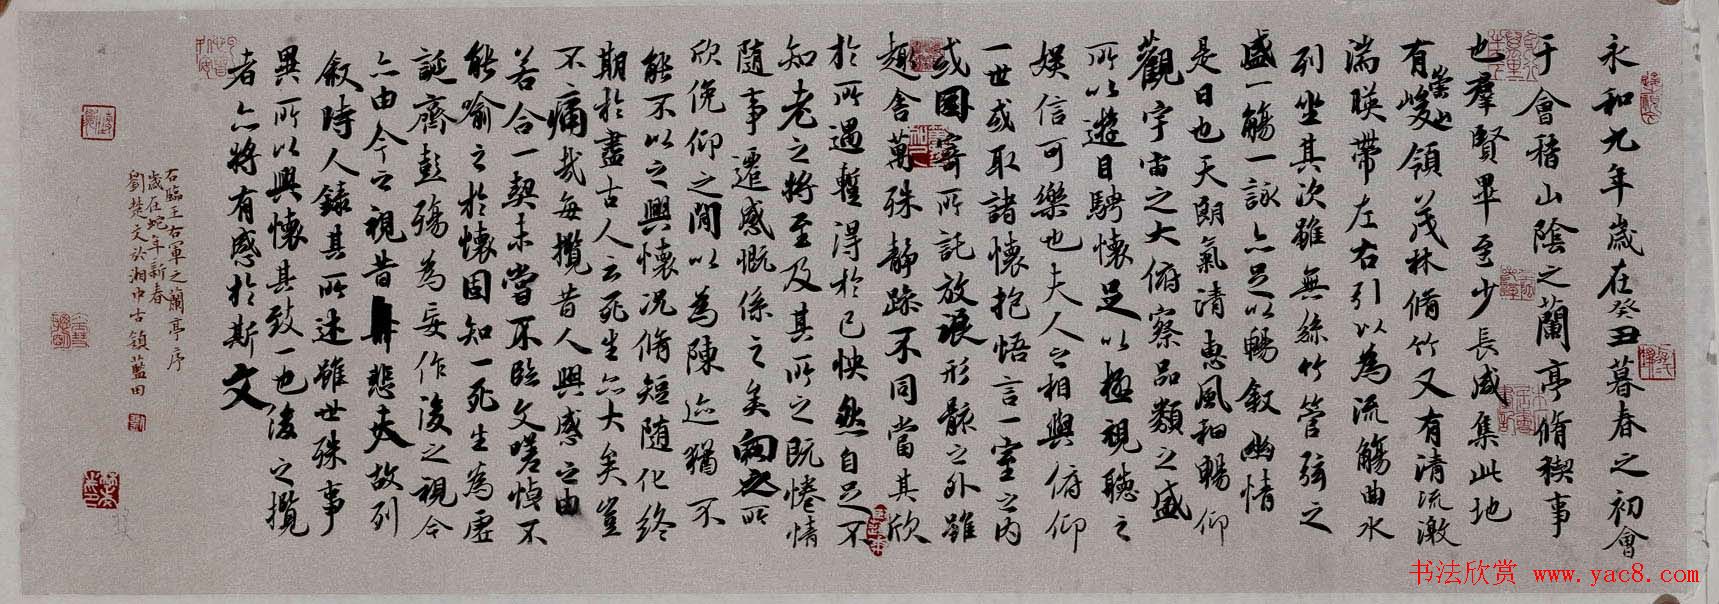 永和九年歲在癸丑暮春之初會
于會稽山陰之蘭亭脩稧事
也羣賢畢至少長咸集此地
有崇山峻領茂林脩竹又有清流激
湍暎帶左右引以為流觴曲水
列坐其次雖無絲竹管弦之
盛一觴一詠亦足以暢敘幽情
是日也天朗氣清惠風和暢仰
觀宇宙之大俯察品類之盛
所以遊目騁懷足以極視聽之
娛信可樂也夫人之相與俯仰
一世或取諸懷抱悟言一室之內
或因寄所託放浪形骸之外雖
趣舍萬殊靜躁不同當其欣
於所遇暫得於己怏然自足不
知老之將至及其所之既惓情
隨事遷感慨係之矣向之所
欣俛仰之閒以為陳迹猶不
能不以之興懷況脩短隨化終
期於盡古人云死生亦大矣豈
不痛哉每攬昔人興感之由
若合一契未嘗不臨文嗟悼不
能喻之於懷固知一死生為虛
誕齊彭殤為妄作後之視今
亦由今之視昔悲夫故列
敘時人錄其所述雖世殊事
異所以興懷其致一也後之攬
者亦將有感於斯文
右臨王右軍之蘭亭序
歲在蛇年新春
劉楚文於湘中古鎮藍田
书法欣赏 www.yac8.com